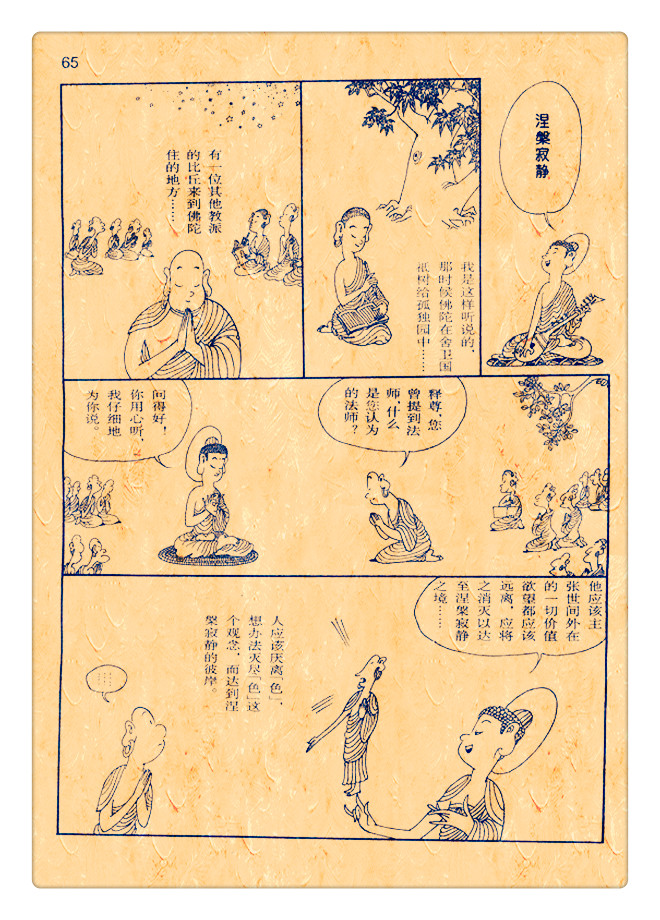 65
涅槃寂静
我是这样听说的，
那时候佛陀在舍卫国
祇树给孤独园中……
有一位其他教派
的比丘来到佛陀
住的地方……
释尊，您
曾提到法
师，什么
是您认为
的法师？
问得好！
你用心听，
我仔细地
为你说。
他应该主
张世间外在
的一切价值
欲望都应该
远离，应将
之消灭以达
至涅槃寂静
之境……
人应该厌离“色”，
想办法灭尽“色”这
个观念，而达到涅
槃寂静的彼岸。
……